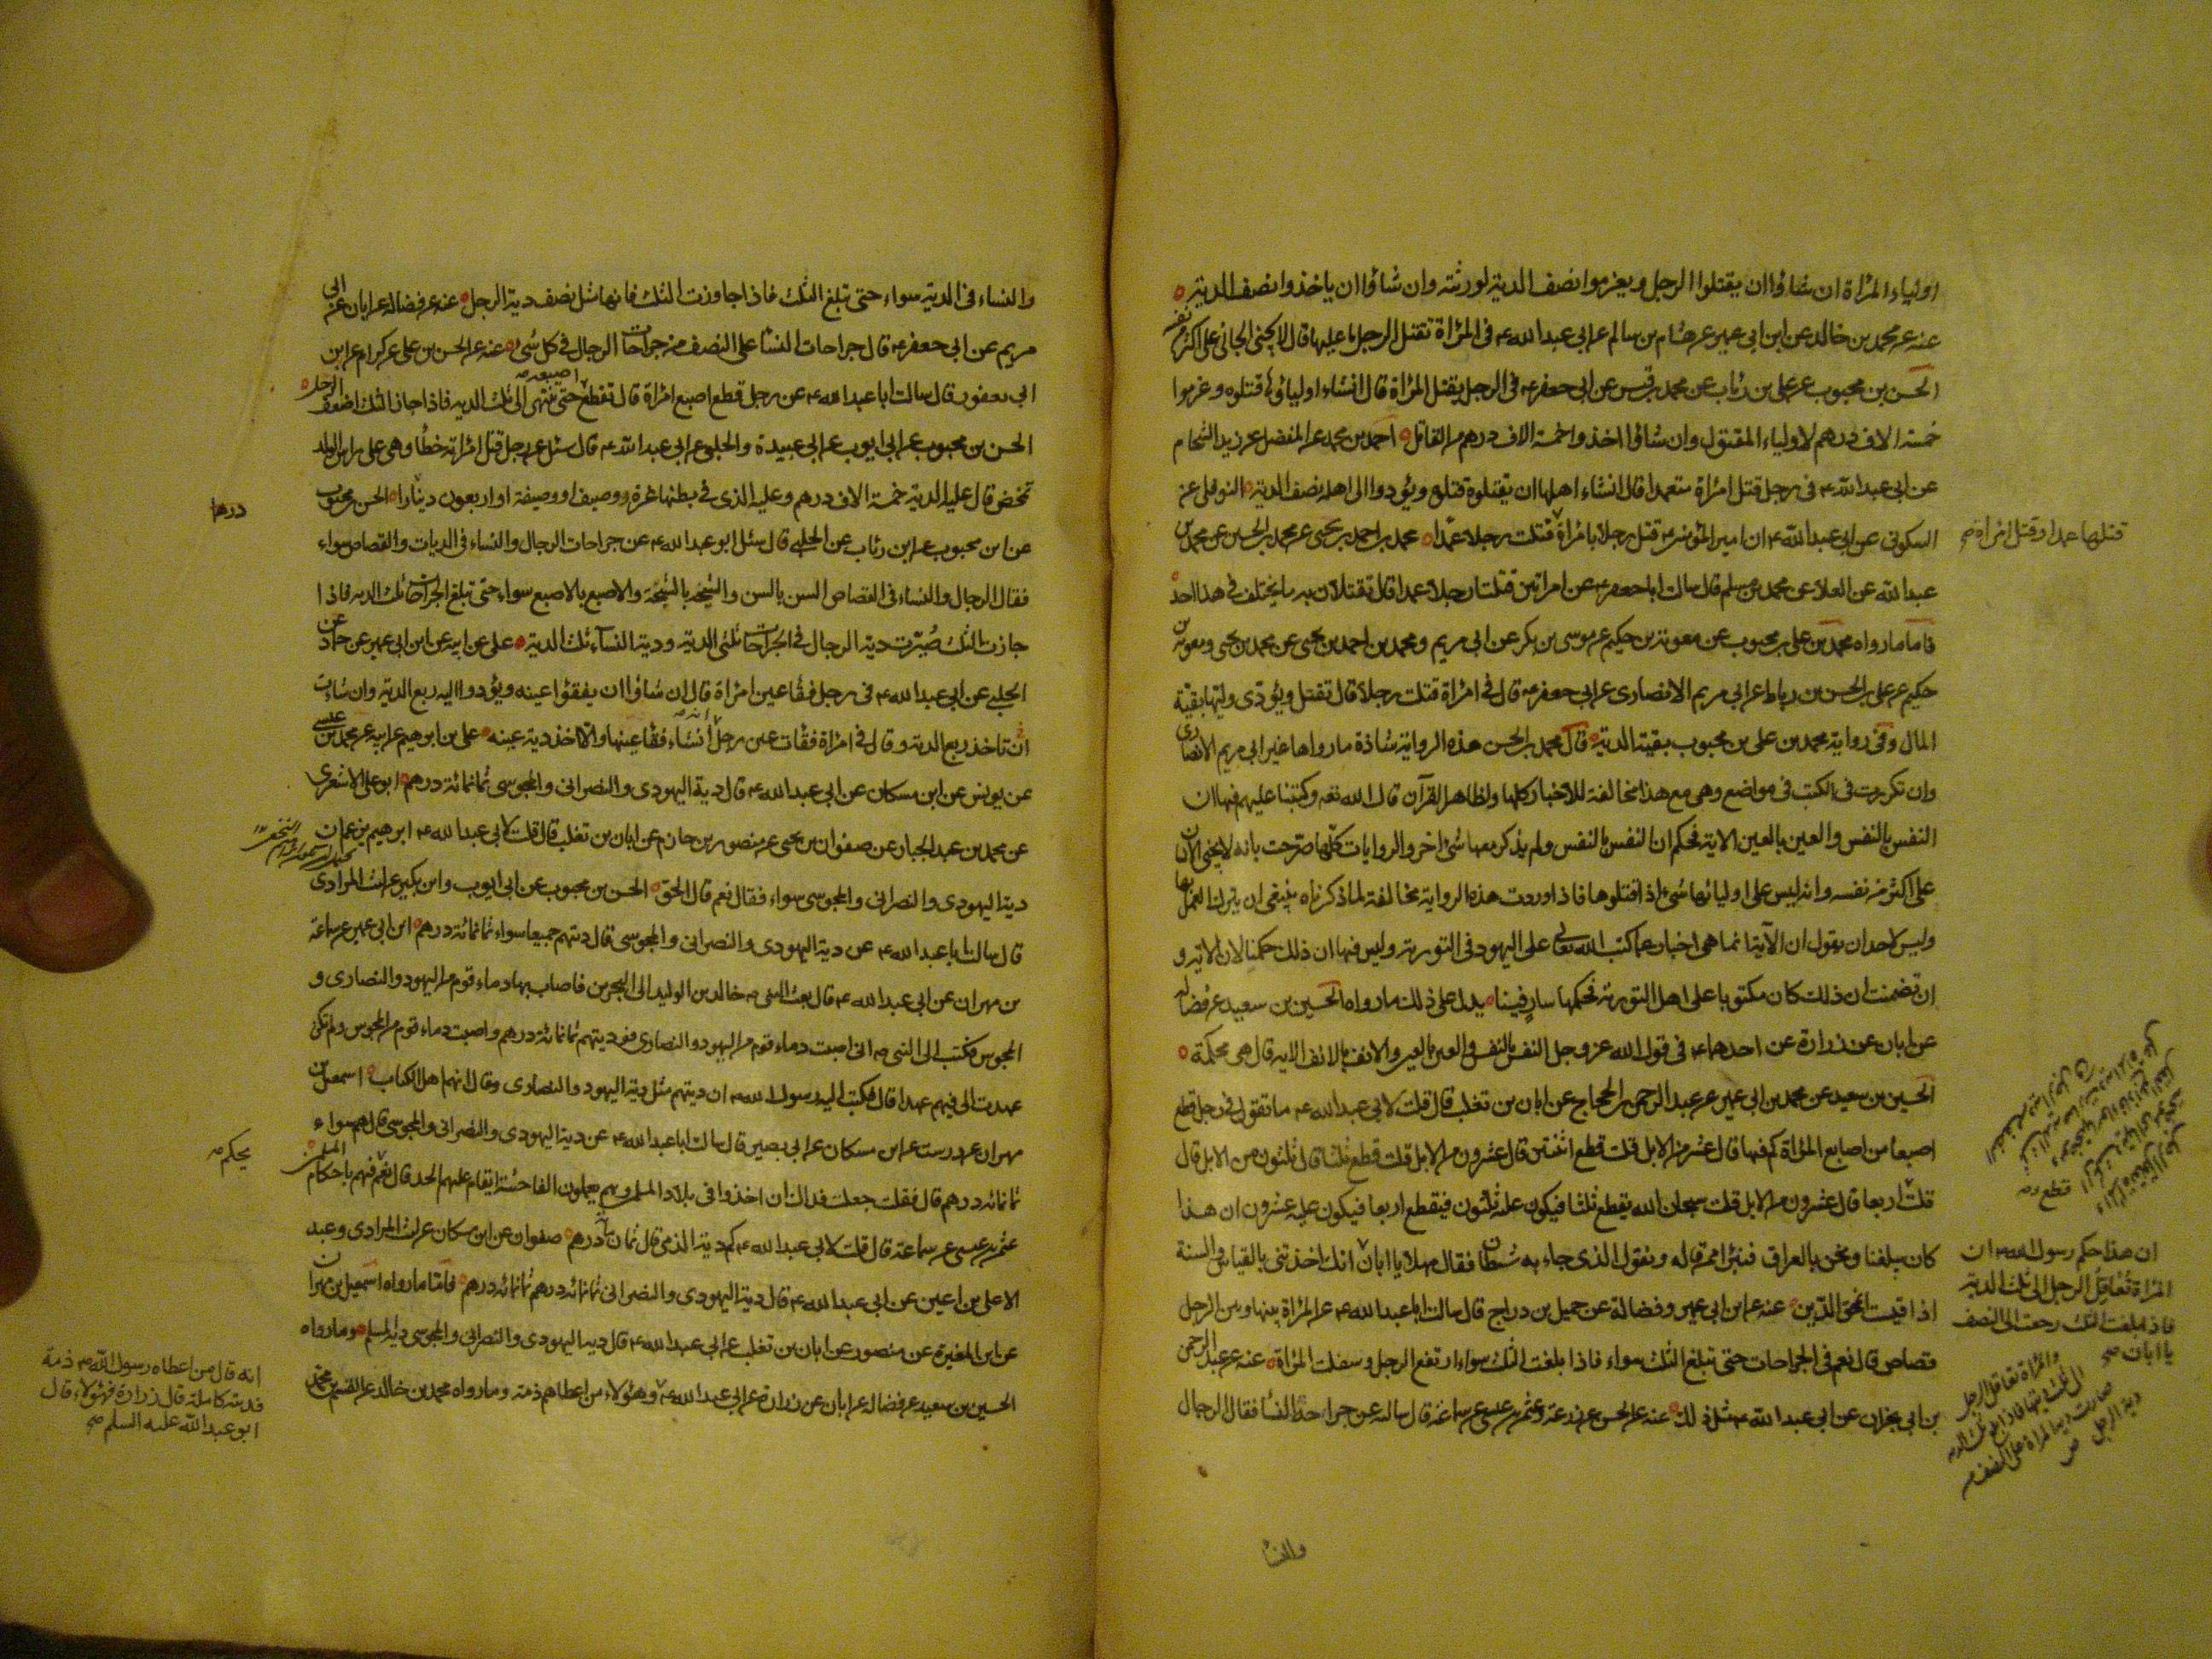 اولياء المرأة ان شاؤا ان يقتلوا الرجل ويغرموا نصف الدية لورثته وان شاؤا ان ياخذوا نصف الدية
عنه عن محمد بن خالد عن ابن ابي عمير عن هشام بن سالم عن ابي عبد الله ع في المرأة تقتل الرجل ما عليها قال لا يجنى الجاني على اكثر من نفسه
الحسن بن محبوب عن علي بن رئاب عن محمد بن قيس عن ابي جعفر ع في الرجل يقتل المرأة قال ان شاء اولياؤها قتلوه وغرموا
خمسة الاف درهم لاولياء المقتول وان شاؤا اخذوا خمسة الاف درهم من القاتل احمد بن محمد عن المفضل عن زيد الشحام
عن ابي عبد الله ع في رجل قتل امرأة متعمدا قال ان شاء اهلها ان يقتلوه قتلوه ويؤدوا الى اهله نصف الدية النوفلي عن
السكوني عن ابي عبد الله ع ان امير المؤمنين ع قتل رجلا بامرأة قتلت رجلا عمدا محمد بن احمد بن يحيى عن محمد بن الحسين عن محمد بن
قتلها عمدا وقتل امرأة صح
عبد الله عن العلا عن محمد بن مسلم قال سالت ابا جعفر ع عن امراتين قتلتا رجلا عمدا قال تقتلان به ما يختلف في هذا احد
فاما ما رواه محمد بن علي بن محبوب عن معوية بن حكيم عن موسى بن بكر عن ابي مريم ومحمد بن احمد بن يحيى عن محمد بن يحيى ومعوية بن
حكيم عن علي بن الحسن بن رباط عن ابي مريم الانصارى عن ابي جعفر ع قال في امرأة قتلت رجلا قال تقتل ويؤدى وليها بقية
المال وفي رواية محمد بن علي بن محبوب بقية الدية قال محمد بن الحسن هذه الرواية شاذة ما رواها غير ابي مريم الانصارى
وان تكررت في الكتب في مواضع وهي مع هذا مخالفة للاخبار كلها ولظاهر القرآن قال الله تعه وكتبنا عليهم فيها ان
النفس بالنفس والعين بالعين الاية فحكم ان النفس بالنفس ولم يذكر معها شئ اخر والروايات كلها صرحت بانه لا يجنى الانسان
على اكثر من نفسه وانه ليس على اوليائها شئ اذا قتلوها فاذا وردت هذه الرواية مخالفة لما ذكرناه ينبغي ان يترك العمل بها
وليس لاحد ان يقول ان الآية انما هي اخبار عما كتب الله تعالى على اليهود في التورية وليس فيها ان ذلك حكمنا لان الاية و
ان تضمنت ان ذلك كان مكتوبا على اهل التورية فحكمها سار فينا يدل على ذلك ما رواه الحسين بن سعيد عن فضاله
عن ابان عن زرارة عن احدهما ع في قول الله عز وجل النفس بالنفس والعين بالعين والانف بالانف الاية قال هي محكمة
الحسين بن سعيد عن محمد بن ابي عمير عن عبد الرحمن بن الحجاج عن ابان بن تغلب قال قلت لابي عبد الله ع ما تقول في رجل قطع
اصبعا من اصابع المرأة كم فيها قال عشر من الابل قلت قطع اثنتين قال عشرون من الابل قلت قطع ثلثا قال ثلثون من الابل قال
قلت اربعا قال عشرون من الابل قلت سبحان الله يقطع ثلثا فيكون عليه ثلثون فيقطع اربعا فيكون عليه عشرون ان هذا
قطع
كان يبلغنا ونحن بالعراق فنبرأ ممن قاله ونقول الذى جاء به شيطان فقال مهلا يا ابان انك اخذتني بالقياس والسنة
ان هذا حكم رسول الله ص ان
المرأة تعاقل الرجل الى ثلث الدية
فاذا بلغت الثلث رجعت الى النصف
يا ابان صح
اذا قيست انمحق الدين عنه عن ابن ابي عمير وفضالة عن جميل بن دراج قال سالت ابا عبد الله ع عن المرأة بينها وبين الرجل
قصاص قال نعم في الجراحات حتى تبلغ الثلث سواء فاذا بلغت الثلث سواء ارتفع الرجل وسفلت المرأة عنه عن عبد الرحمن
بن ابي نجران عن ابي عبد الله ع مثل ذلك عنه عن الحسن عن زرعة وعثمان بن عيسى عن سماعة قال سالته عن جراحة النسا فقال الرجال
والنسا
والنساء في الدية سواء حتى تبلغ الثلث فاذا جاوزت الثلث فانها مثل نصف دية الرجل عنه عن فضاله عن ابان عن ابي
مريم عن ابي جعفر ع قال جراحات النساء على النصف من جراحات الرجال في كل شئ عنه عن الحسن بن علي عن كرام عن ابن
ابي يعفور قال سالت ابا عبد الله ع عن رجل قطع اصبع امرأة قال تقطع اصبعه حتى تنتهى الى ثلث الدية فاذا جاز الثلث اضعف الرجل
الحسن بن محبوب عن ابي ايوب عن ابي عبيدة والحلبي عن ابي عبد الله ع قال سئل عن رجل قتل امرأته خطأ وهي على راس الولد
تمخض قال عليه الدية خمسة الاف درهم وعليه الذى في بطنها غرة ووصيف او وصيفة او اربعون دينارا الحسن بن محبوب
درهما
عن ابن محبوب عن ابن رئاب عن الحلبي قال سئل ابو عبد الله ع عن جراحات الرجال والنساء في الديات والقصاص سواء
فقال الرجال والنساء في القصاص السن بالسن والشجة بالشجة والاصبع بالاصبع سواء حتى تبلغ الجراحات ثلث الدية فاذا
جازت الثلث صيرت دية الرجال في الجراحات ثلثي الدية ودية النساء ثلث الدية علي عن ابيه عن ابن ابي عمير عن حماد عن
الحلبي عن ابي عبد الله ع في رجل فقأ عين امرأة قال ان شاؤا ان يفقؤا عينه ويؤدوا اليه ربع الدية وان شاءت
ان تاخذ ربع الدية وقال في امرأة فقأت عين رجل انه ان شاء فقأ عينها والا اخذ دية عينه علي بن ابرهيم عن ابيه عن محمد بن عيسى
عن يونس عن ابن مسكان عن ابي عبد الله ع قال دية اليهودى والنصراني والمجوسى ثمانمائة درهم ابو علي الاشعرى
عن محمد بن عبد الجبار عن صفوان بن يحيى عن منصور بن حازم عن ابان بن تغلب قال قلت لابي عبد الله ع ابرهيم يزعم ان
دية اليهودى والنصراني والمجوسى سواء فقال نعم قال الحق الحسن بن محبوب عن ابي ايوب وابن بكير عن ليث المرادى
قال سالت ابا عبد الله ع عن دية اليهودى والنصراني والمجوسى قال ديتهم جميعا سواء ثمانمائة درهم ابن ابي عمير عن سماعة
بن مهران عن ابي عبد الله ع قال بعث النبي ص خالد بن الوليد الى البحرين فاصاب بها دماء قوم من اليهود والنصارى و
المجوس فكتب الى النبي ص اني اصبت دماء قوم من اليهود والنصارى فوديتهم ثمانمائة درهم واصبت دماء قوم من المجوس ولم تكن
عهدت الى فيهم عهدا قال فكتب اليه رسول الله ص ان ديتهم مثل دية اليهود والنصارى وقال انهم اهل الكتاب اسمعيل بن
مهران عن درست عن ابن مسكان عن ابي بصير قال سالت ابا عبد الله ع عن دية اليهودى والنصراني والمجوسى قال هم سواء
ثمانمائة درهم قال فقلت جعلت فداك ان اخذوا في بلاد المسلمين وهم يعملون الفاحشة ايقام عليهم الحد قال نعم فيهم باحكام المسلمين
يحكم
عثمان بن عيسى عن سماعة قال قلت لابي عبد الله ع كم دية الذمى قال ثمانمائة درهم صفوان عن ابن مسكان عن ليث المرادى وعبد
الاعلى بن اعين عن ابي عبد الله ع قال دية اليهودى والنصراني ثمانمائة درهم ثمانمائة درهم فاما ما رواه اسمعيل بن مهران
عن ابن المغيرة عن منصور عن ابان بن تغلب عن ابي عبد الله ع قال دية اليهودى والنصراني والمجوسى دية المسلم وما رواه
الحسين بن سعيد عن فضاله عن ابان عن زرارة عن ابي عبد الله ع وهؤلاء من اعطاهم ذمة وما رواه محمد بن خالد عن القسم بن محمد
انه قال من اعطاه رسول الله ص ذمة
فديته كاملة قال زرارة فهؤلاء قال
ابو عبد الله عليه السلم صح